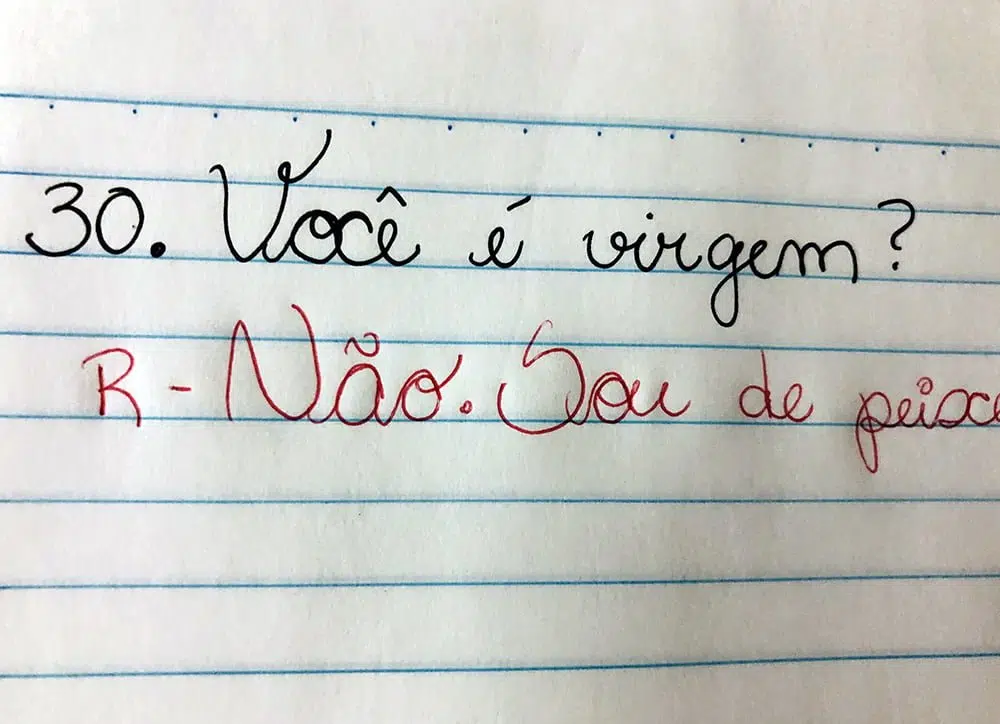 30. Você é virgem?
R - Não. Sou de